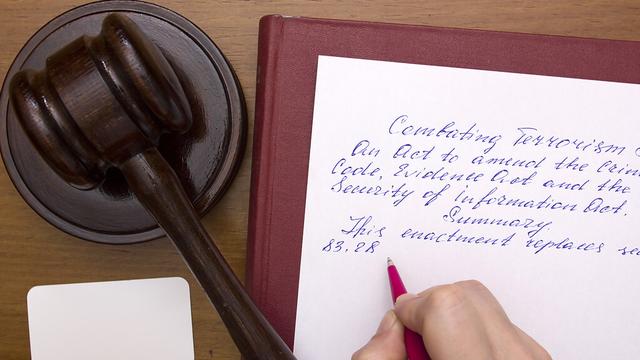 Combating Terrorism
An Act to amend the Crim
Code, Evidence Act and the
Security of Information Act.
Summary.
This enactment replaces se
83.28